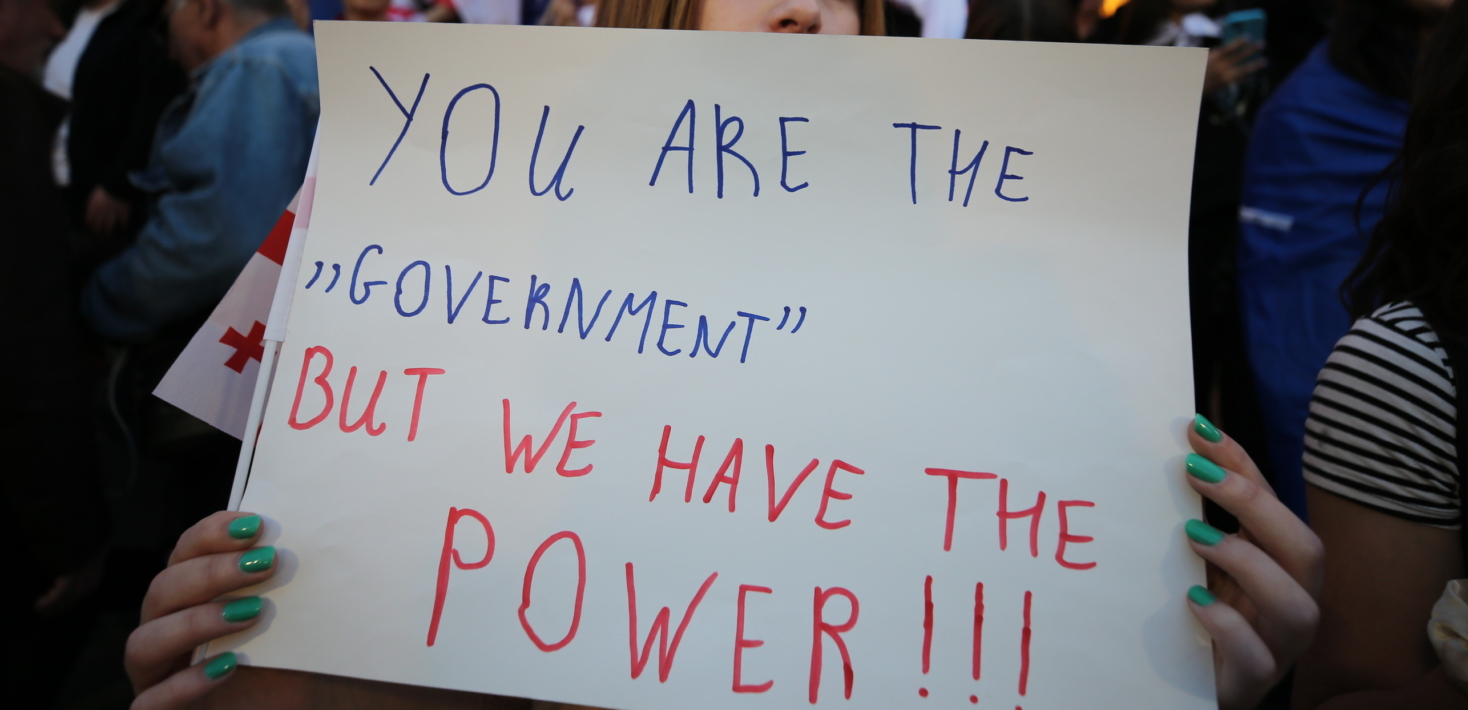 YOU ARE THE
„GOVERNMENT”
BUT WE HAVE THE
POWER!!!